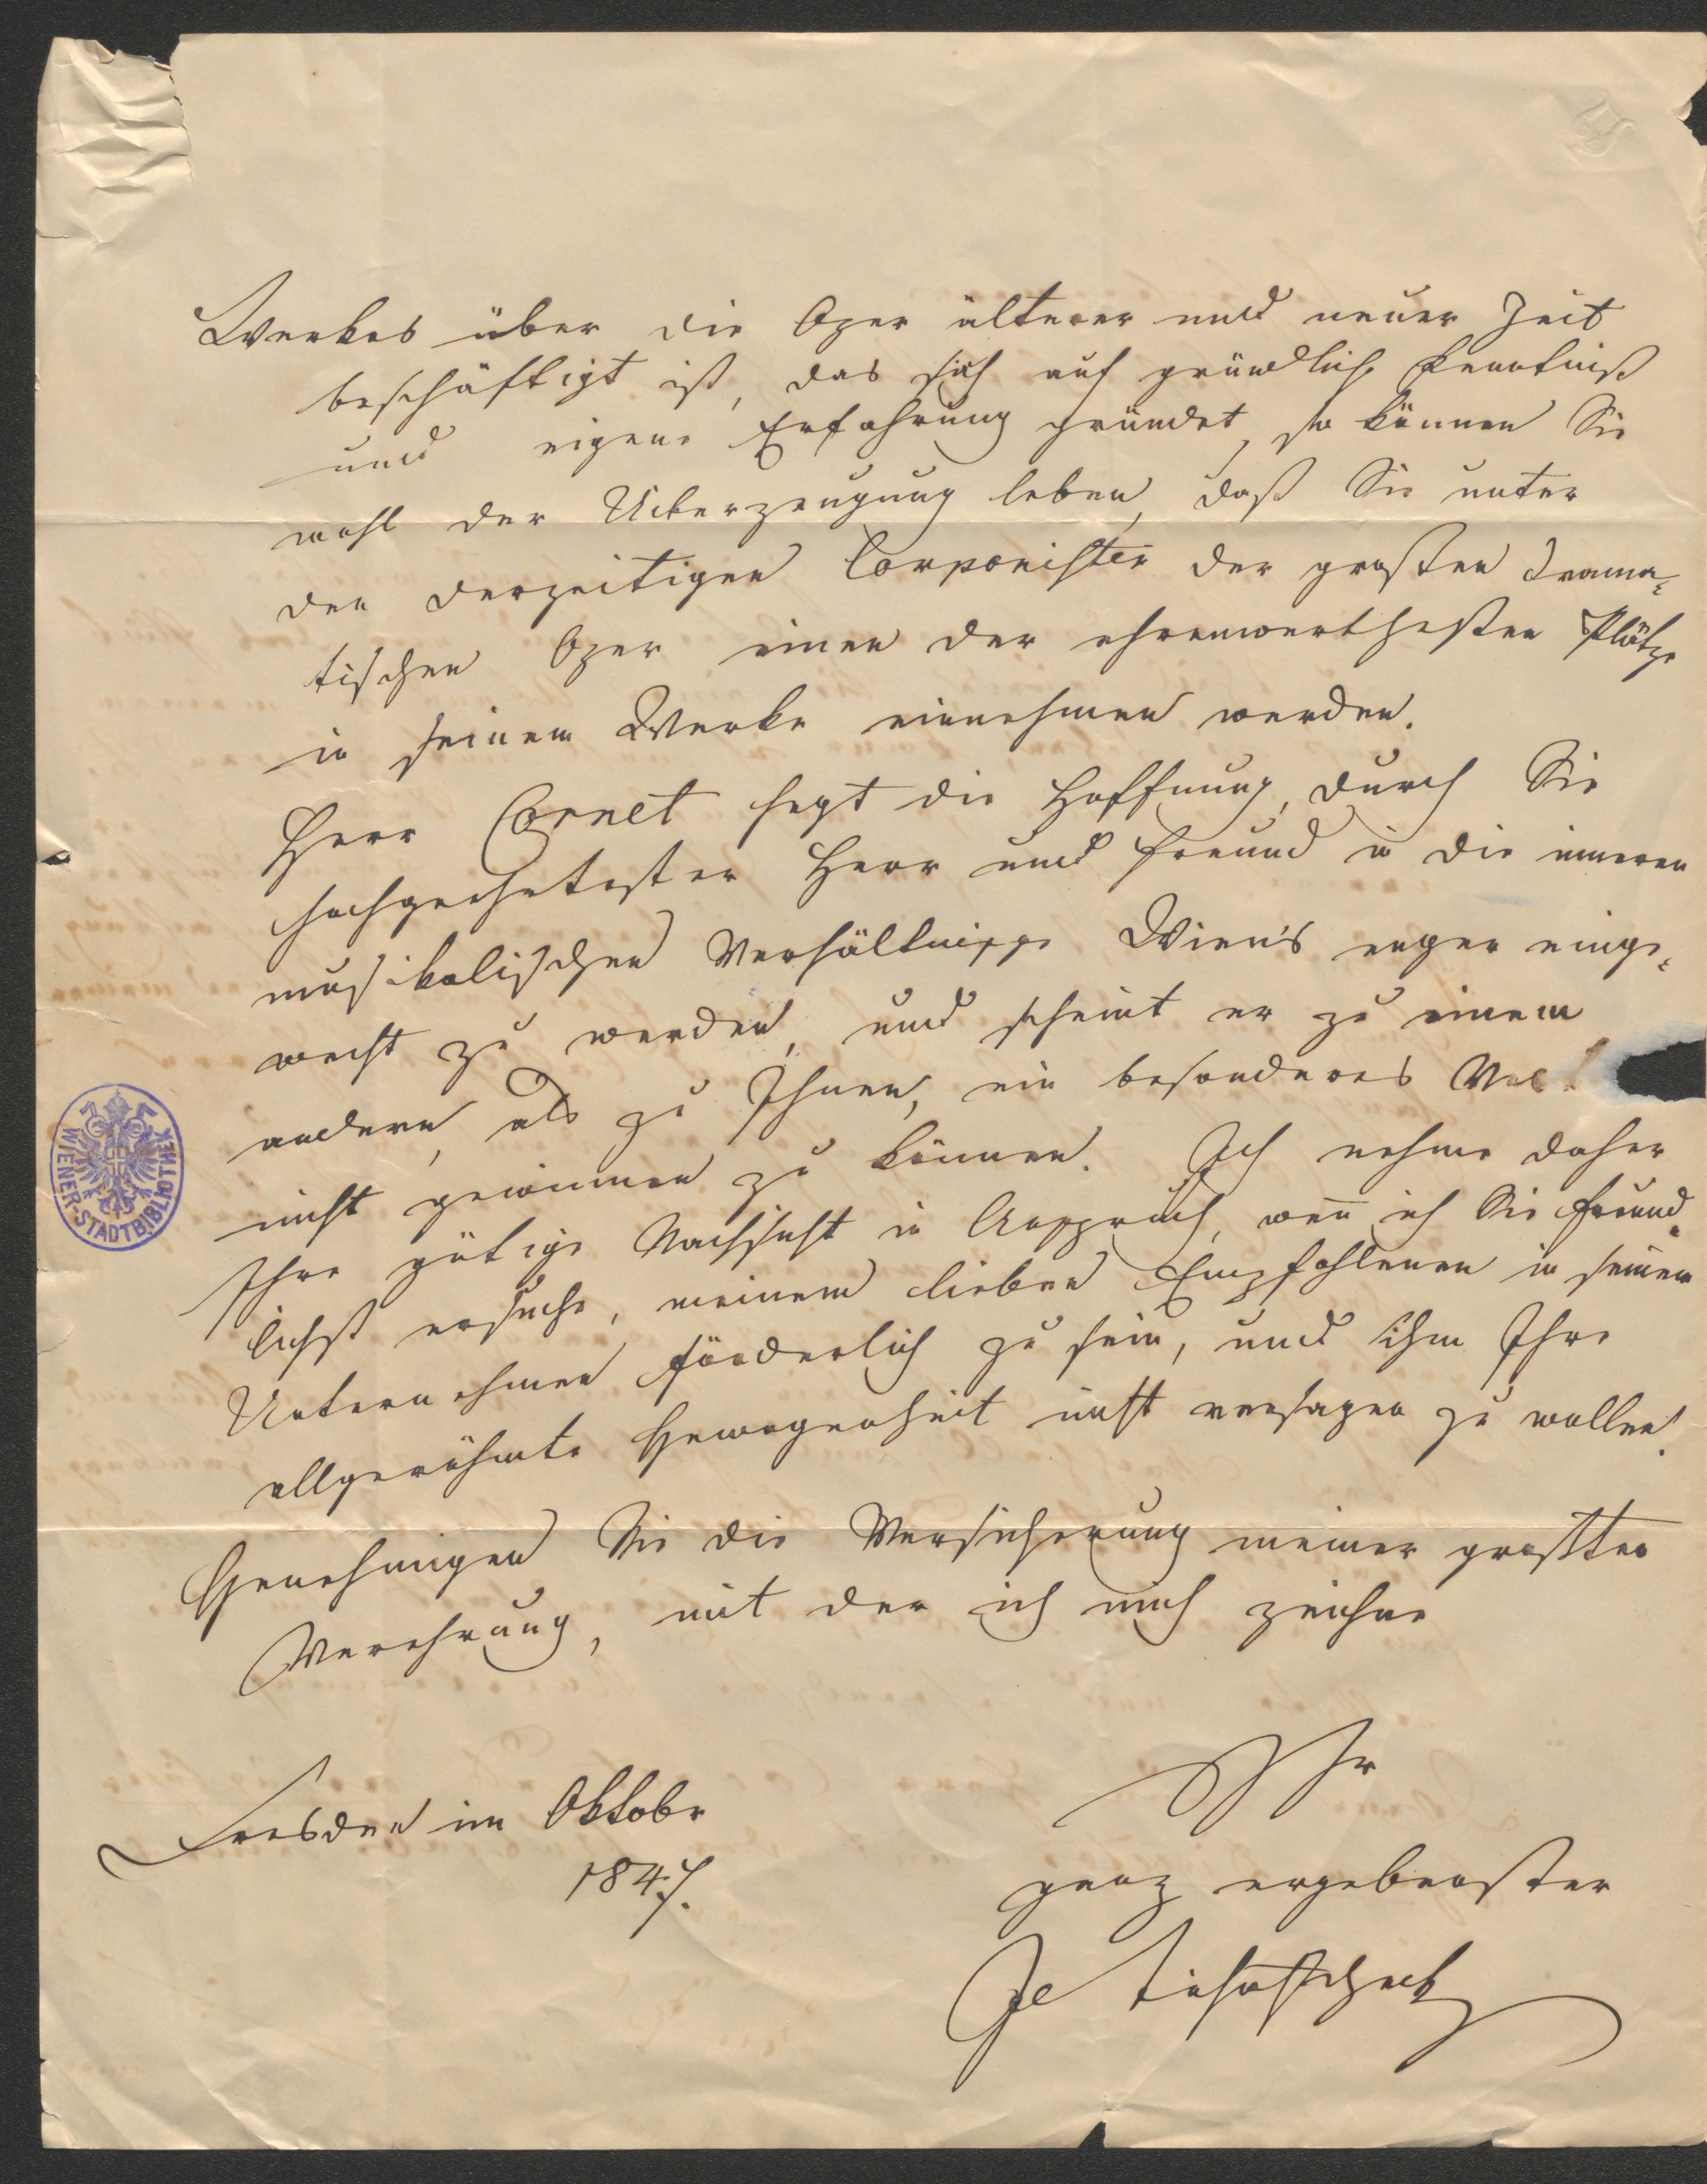 Werkes über die Oper älterer und neuer Zeit
beschäftigt ist, das sich auf gründliche Kenntniß
und eigene Erfahrung gründet, so können Sie
wohl der Ueberzeugung leben, daß Sie unter
den derzeitigen Componisten der großen drama-
tischen Oper einen der ehrenwerthesten Plätze
in seinem Werke einnehmen werden.
Herr Cornet hegt die Hoffnung, durch Sie
hochgeehrtester Herr und Freund in die inneren
musikalischen Verhältnisse Wien's enger einge-
weiht zu werden, und scheint er zu einem
andern, als zu Ihnen, ein besonderes
nicht gewinnen zu können. Ich nehme daher
Ihre gütige Nachsicht in Anspruch, wenn ich Sie freund-
lichst ersuche, meinem lieben Empfohlenen in seinem
Unternehmen förderlich zu sein, und ihm Ihre
allgerühmte Gewogenheit nicht versagen zu wollen.
Genehmigen Sie die Versicherung meiner großten
Verehrung, mit der ich mich zeichne
Ihr
Dresden im Oktobr
1847.
ganz ergebenster
Tichatscheck
WIENER-STADTBIBLIOTHEK